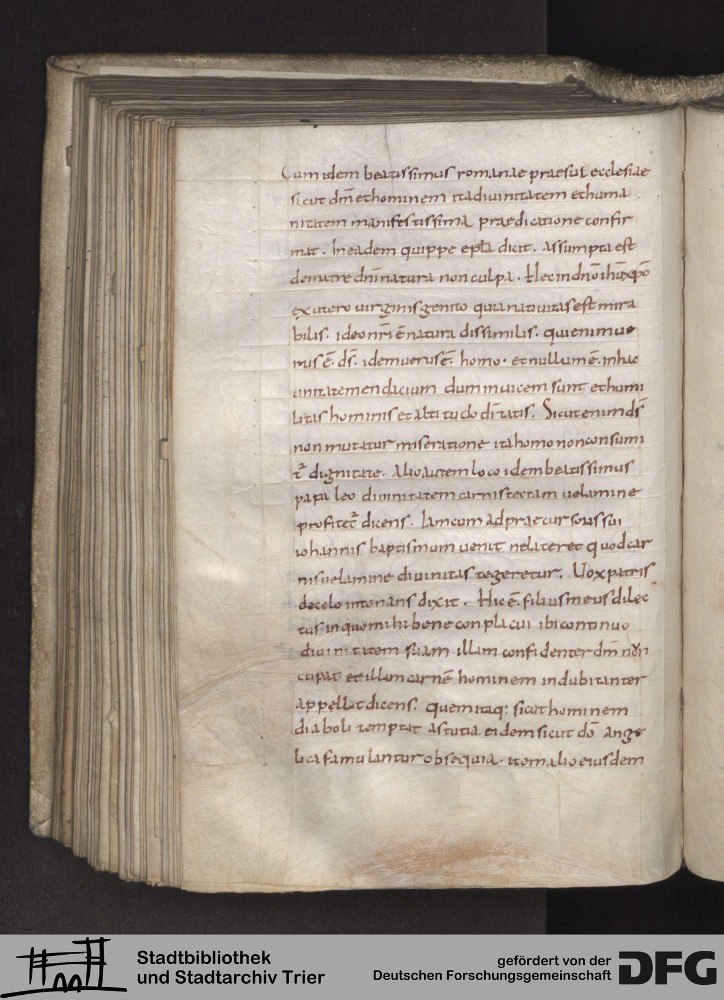 Cum idem beatissimus romanae praesul ecclesiae
sicut dm̄ et hominem ita diuinitatem et huma
nitatem manifestissima praedicatione confir
mat. In eadem quippe epl̄a dicit. Assumpta est
de matre dn̄i natura non culpa. Nec in dn̄o ihū xpō
ex utero uirginis genito quia natiuitas est mira
bilis. ideo nr̄i ē natura dissimilis. qui enim ue
rus ē. ds̄. idem uerus ē. homo. et nullum ē. in hac
unitate mendacium dum inuicem sunt et humi
litas hominis et altitudo di̅tatis. Sicut enim ds̄
non mutatur miseratione ita homo non consumi
t᷑ dignitate. Alio autem loco idem beatissimus
papa leo diuinitatem carnis tectam uelamine
profitet᷑ dicens. Iam cum ad praecursoris sui
iohannis baptismum uenit ne lateret quod car
nis uelamine diuinitas tegeretur. Uox patris
de celo intonans dixit. Hic ē. filius meus dilec
tus in quo mihi bene conplacui ibi continuo
diuinitatem suam illam confidenter dm̄ nun
cupat et illam carnē hominem indubitanter
appellat dicens. quem itaq: sicut hominem
diaboli temptat astutia eidem sicut dō ange
lica famulantur obsequia. item alio eiusdem
Stadtbibliothek
und Stadtarchiv Trier
gefördert von der
Deutschen Forschungsgemeinschaft
DFG